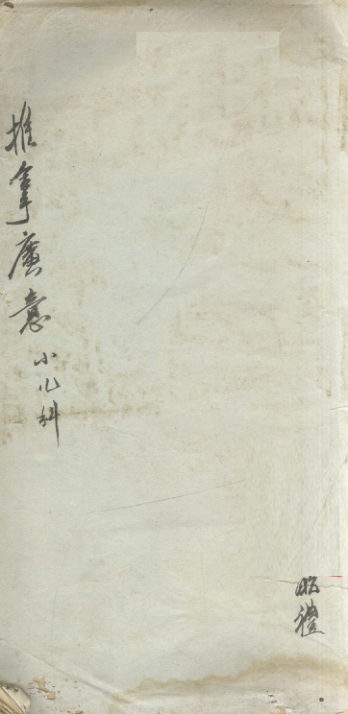 推拿廣意 小儿科
昭禮